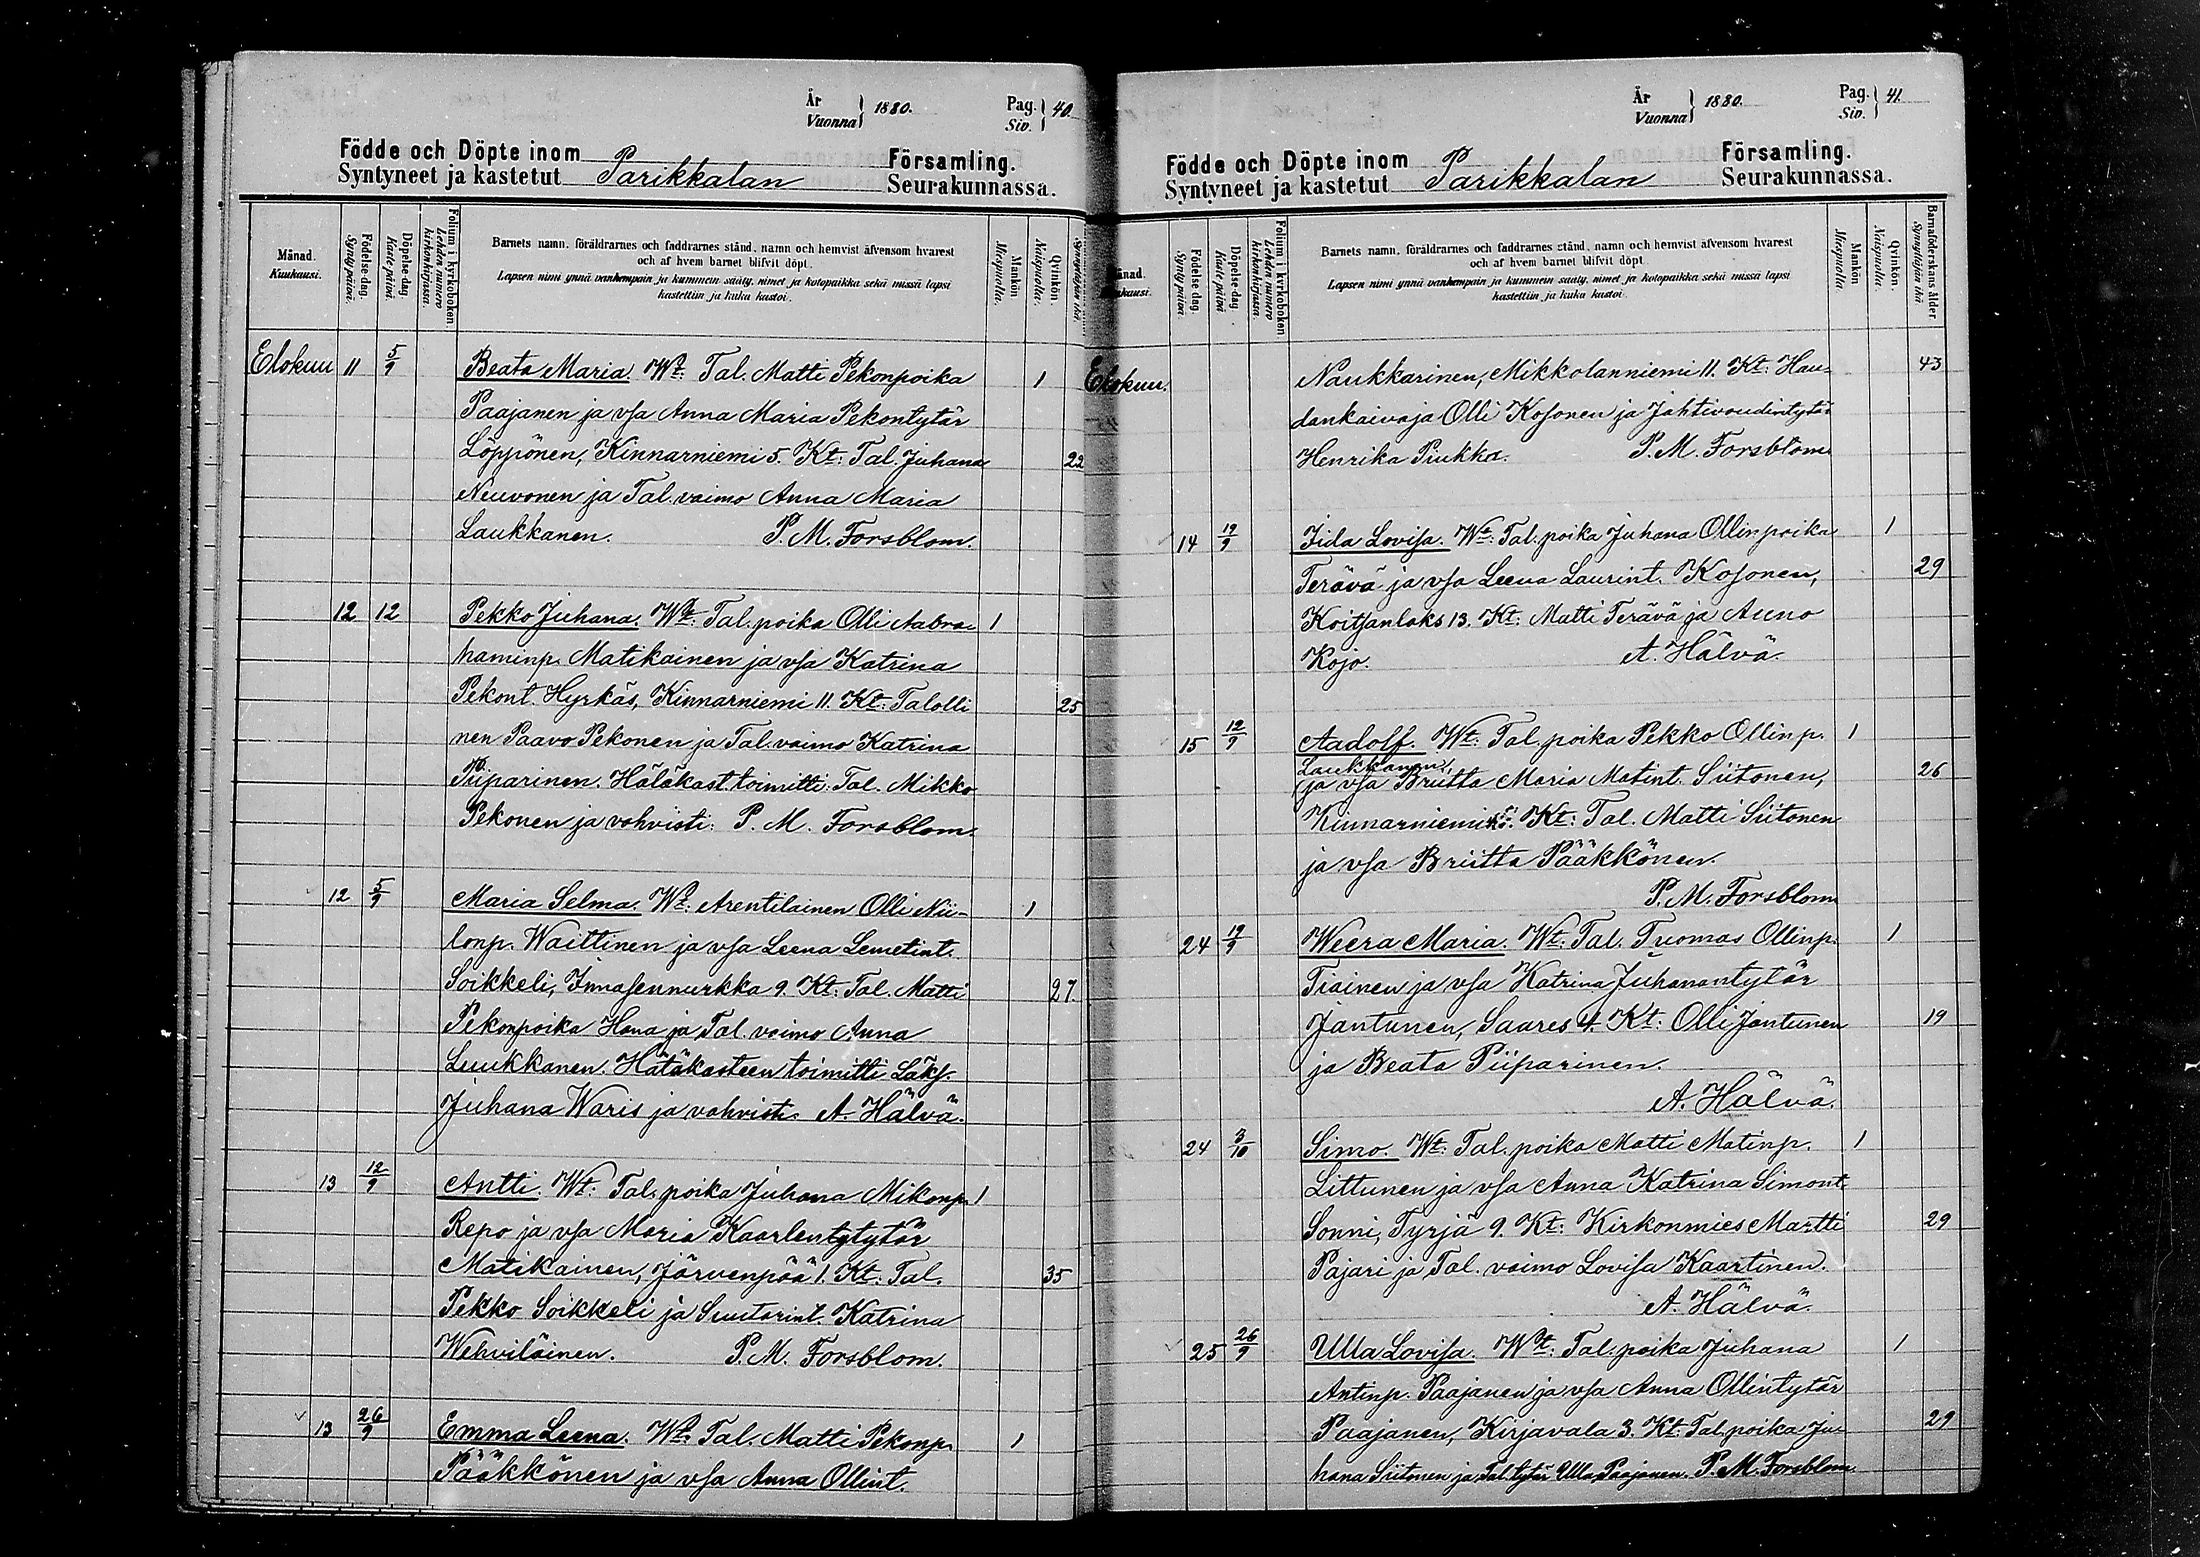 År
Vuonna } 1880. Pag.
Siv. } 40.
Födde och Döpte inom Församling.
Syntyneet ja kastetut Parikkalan Seurakunnassa.
Månad. Kuukausi.
Födelse-dag. Synty päivä.
Döpelse-dag Kaste päivä.
Folium i kyrkoboken. Lehden numero kirkonkirjassa.
Barnets namn, föräldrarnes och faddrarnes stånd, namn och hemvist äfvensom hvarest
och af hvem barnet blifvit döpt.
Lapsen nimi ynnä vanhempain ja kummein sääty, nimet ja kotopaikka sekä missä lapsi
kastettiin ja kuka kastoi.
Mankön Miespuolia.
Qvinkön. Naispuolia.
Elokuu 11 5/9 Beata Maria. Wt: Tal. Matti Pekonpoika 1
Paajanen ja vsa Anna Maria Pekontytär
Löppönen, Kinnarniemi 5. Kt: Tal. Juhana 22
Neuvonen ja Tal. vaimo Anna Maria
Laukkanen. P. M. Forsblom.
12 12 Pekko Juhana. Wt: Tal. poika Olli Aabra- 1
haminp. Matikainen ja vsa Katrina
Pekont. Hyrkäs, Kinnarniemi 11. Kt: Talolli 25
nen Paavo Pekonen ja Tal. vaimo Katrina
Piiparinen. Hätäkast. toimitti: Tal. Mikko
Pekonen ja vahvisti: P. M. Forsblom.
12 5/9 Maria Selma. Wt: Arentilainen Olli Nii- 1
lonp. Waittinen ja vsa Leena Lemetint.
Soikkeli, Innasennurkka 9. Kt: Tal. Matti 27
Pekonpoika Hana ja Tal. vaimo Anna
Luukkanen. Hätäkasteen toimitti Läks.
Juhana Waris ja vahvisti A. Hälvä.
13 12/9 Antti. Wt: Tal. poika Juhana Mikonp. 1
Repo ja vsa Maria Kaarlentytytär
Matikainen, Järvenpää 1. Kt: Tal. 35
Pekko Soikkeli ja Suutarint. Katrina
Wehviläinen. P. M. Forsblom.
13 26/9 Emma Leena. Wt: Tal. Matti Pekonp. 1
Pääkkönen ja vsa Anna Ollint.
År
Vuonna } 1880. Pag.
Siv. } 41.
Födde och Döpte inom Församling.
Syntyneet ja kastetut Parikkalan Seurakunnassa.
Födelse dag. Synty päivä.
Döpelse-dag Kaste päivä
Folium i kyrkoboken. Lehden numero kirkonkirjassa.
Barnets namn, föräldrarnes och faddrarnes stånd, namn och hemvist äfvensom hvarest
och af hvem barnet blifvit döpt.
Lapsen nimi ynnä vanhempain ja kummein sääty, nimet ja kotopaikka sekä missä lapsi
kastettiin ja kuka kastoi.
Mankön Miespuolia
Qvinkön. Naispuolia.
Barnaföderskans ålder Synnyttäjän ikä
Elokuu. Naukkarinen, Mikkolanniemi 11. Kt: Hau- 43
dankaivaja Olli Kosonen ja Jahtivoudintytär
Henrika Piukka. P. M. Forsblom
14 19/9 Iida Lovisa. Wt: Tal. poika Juhana Ollinpoika 1
Terävä ja vsa Leena Laurint. Kosonen, 29
Koitsanlaks 13. Kt: Matti Terävä ja Anno
Kojo. A. Hälvä.
15 12/9 Aadolf. Wt: Tal. poika Pekko Ollinp. 1
Laukkanen,
ja vsa Briitta Maria Matint. Siitonen, 26
Kinnarniemi Kt: Tal. Matti Siitonen
ja vsa Briitta Pääkkönen.
P. M. Forsblom
24 19/9 Weera Maria. Wt: Tal. Tuomas Ollinp. 1
Tiainen ja vsa Katrina Juhanantytär
Jantunen, Saares 4. Kt: Olli Jantunen 19
ja Beata Piiparinen.
A. Hälvä.
24 3/10 Simo. Wt: Tal. poika Matti Matinp. 1
Littunen ja vsa Anna Katrina Simont.
Sonni, Tyrjä 9. Kt: Kirkonmies Martti 29
Pajari ja Tal. vaimo Lovisa Kaartinen.
A. Hälvä.
25 26/9 Ulla Lovisa. Wt: Tal. poika Juhana 1
Antinp. Paajanen ja vsa Anna Ollintytär
Paajanen, Kirjavala 3. Kt: Tal. poika Ju- 29
hana Siitonen ja Tal. tytär Ulla Paajanen. P. M. Forsblom.